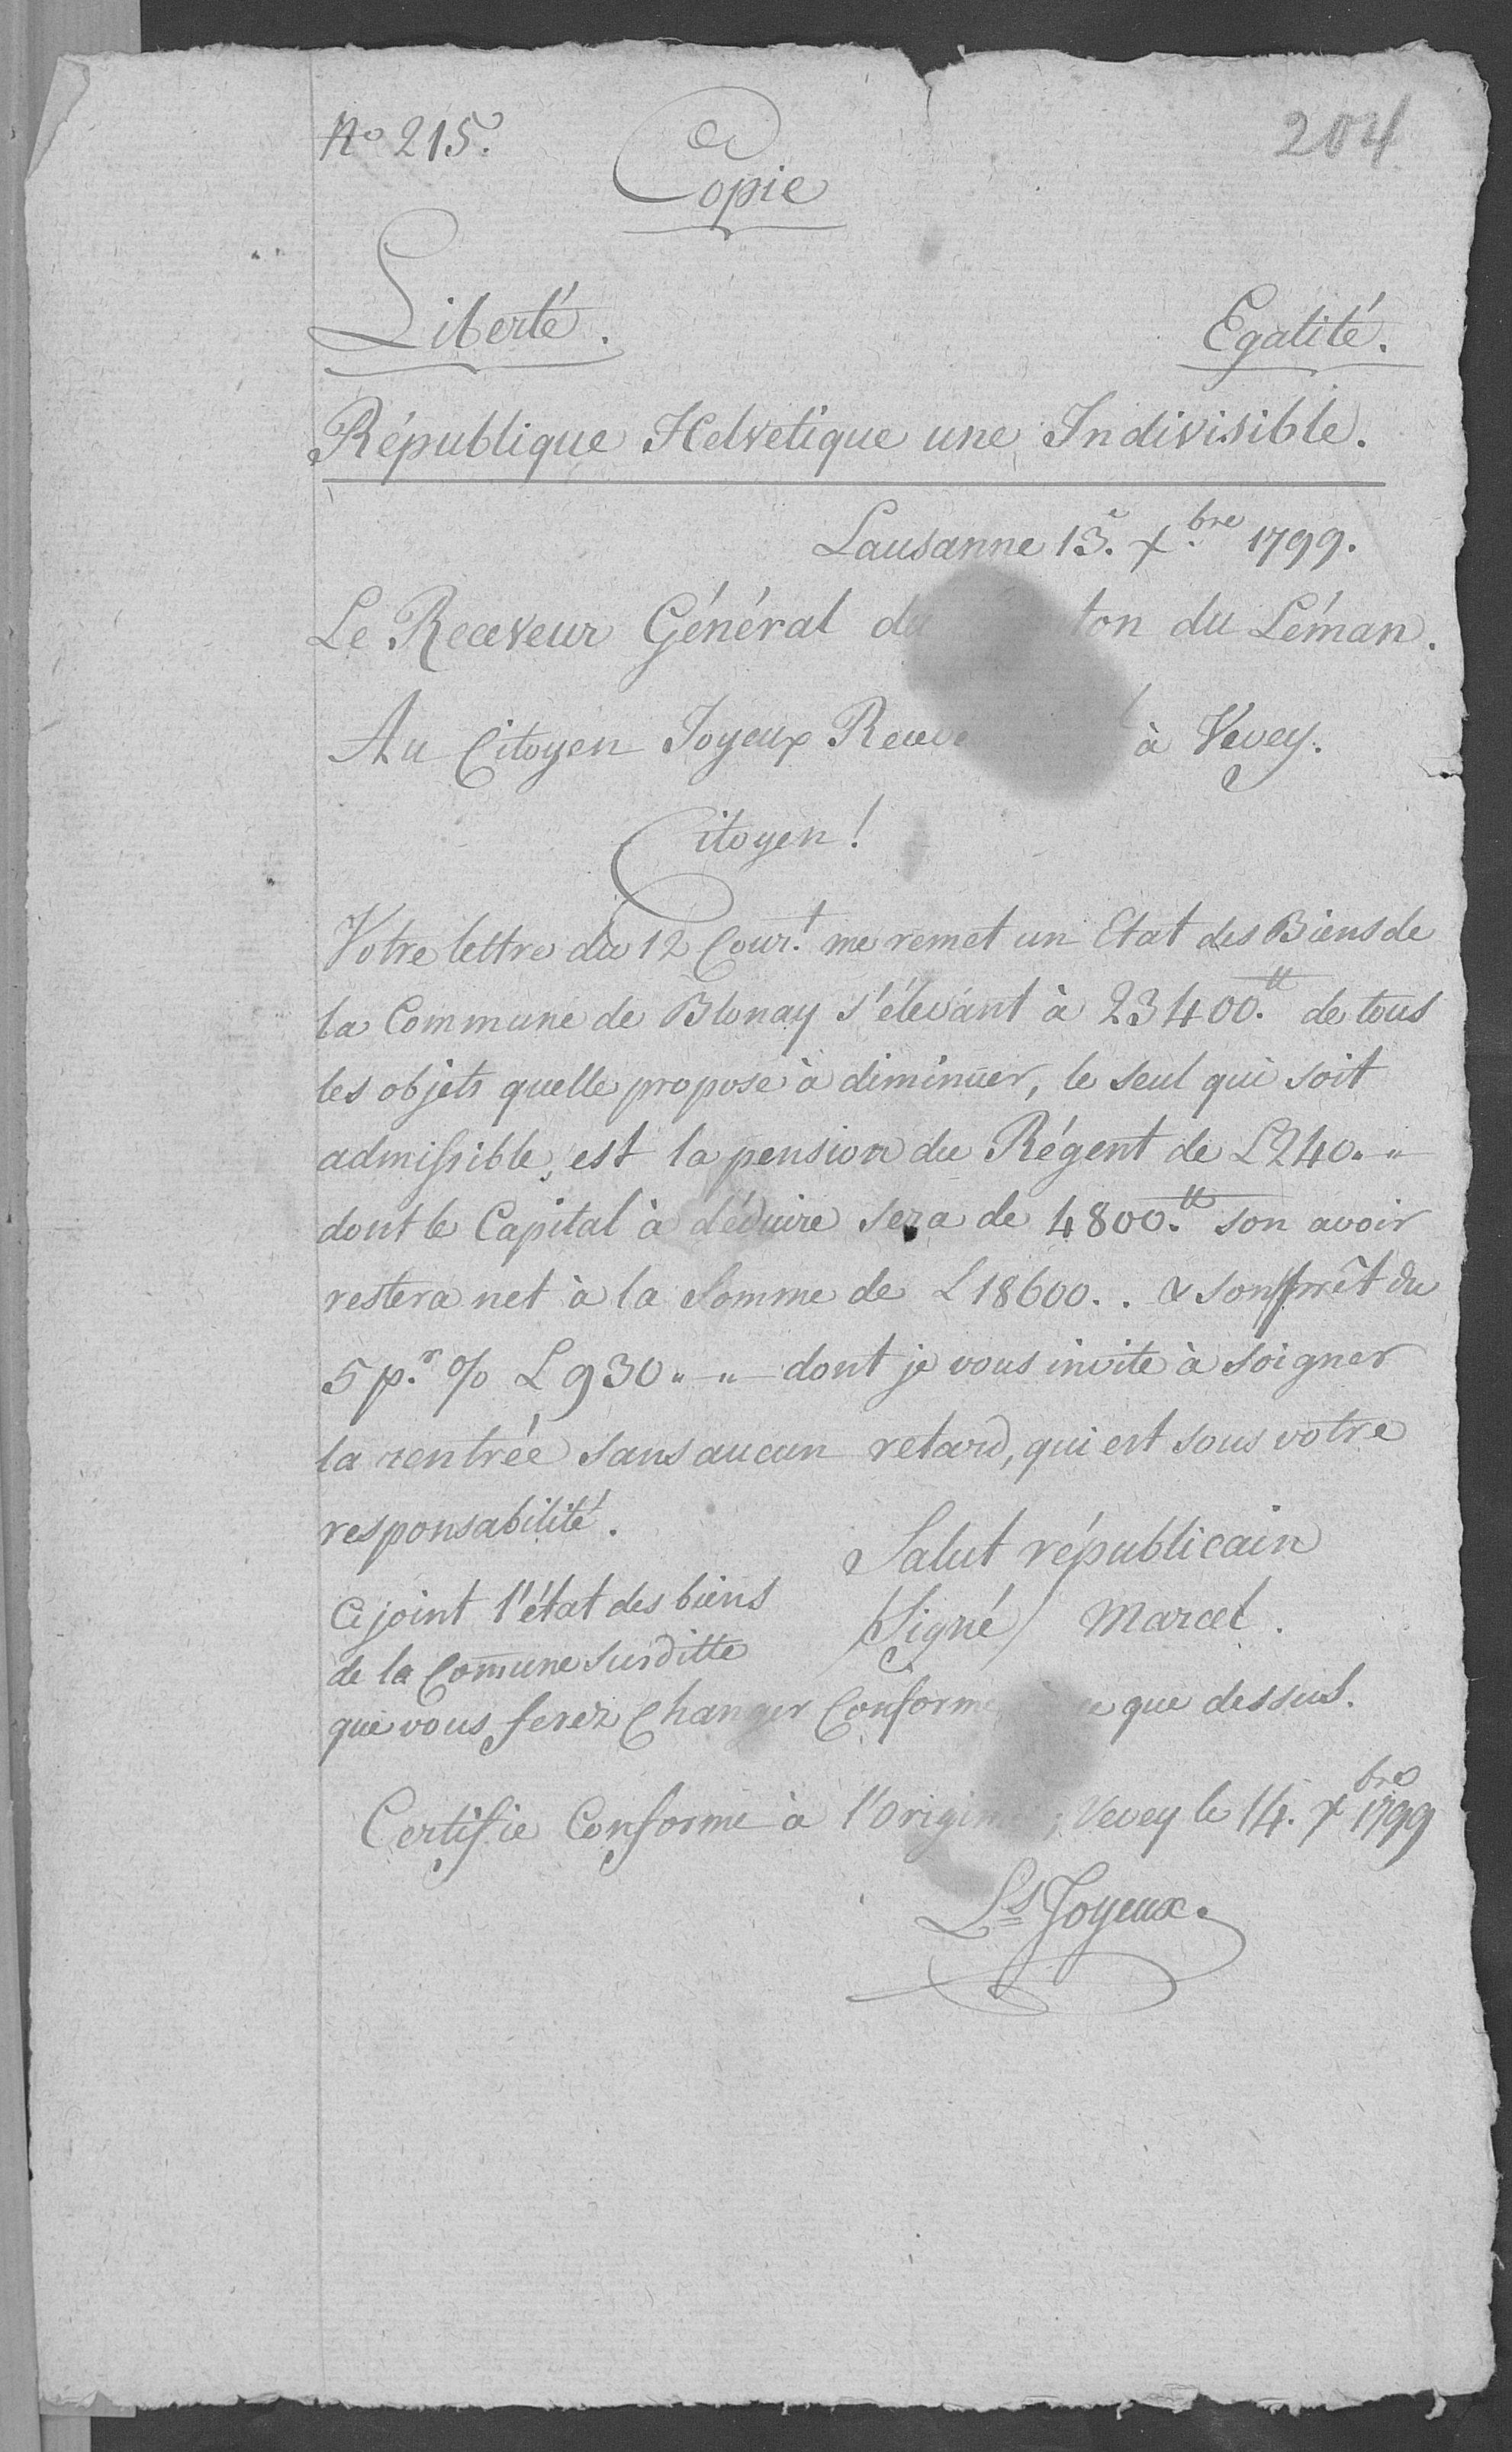 No 215.
204
Copie
Liberté. Egalité.
République Helvetique une Indivisible.
Lausanne 13.e Xbre 1799.
Le Receveur Général du ton du Léman.
Au Citoyen Joyeux à Vevey.
Citoyen!
Votre lettre du 12 Cour.t me remet un Etat des Biens de
la Commune de Blonay s'élevant à 23400.tt de tous
les objets quelle propose à diminuer, le seul qui soit
admissible, est la pension du Régent de L240. "
dont le Capital à déduire sera de 4800.tt son avoir
restera net à la Somme de L 18600. . & son prêt du
5 p.r % L 930 " - " dont je vous invite à soigner
la rentrée sans aucun retard, qui est sous votre
responsabilité.
Salut républicain
/Signé/ Marcel.
Ci joint l'état des biens
de la Comune surditte
que vous ferez Changer que dessus.
Certifie Conforme à Vevey le 14. Xbre 1799
Ls Joyeux.